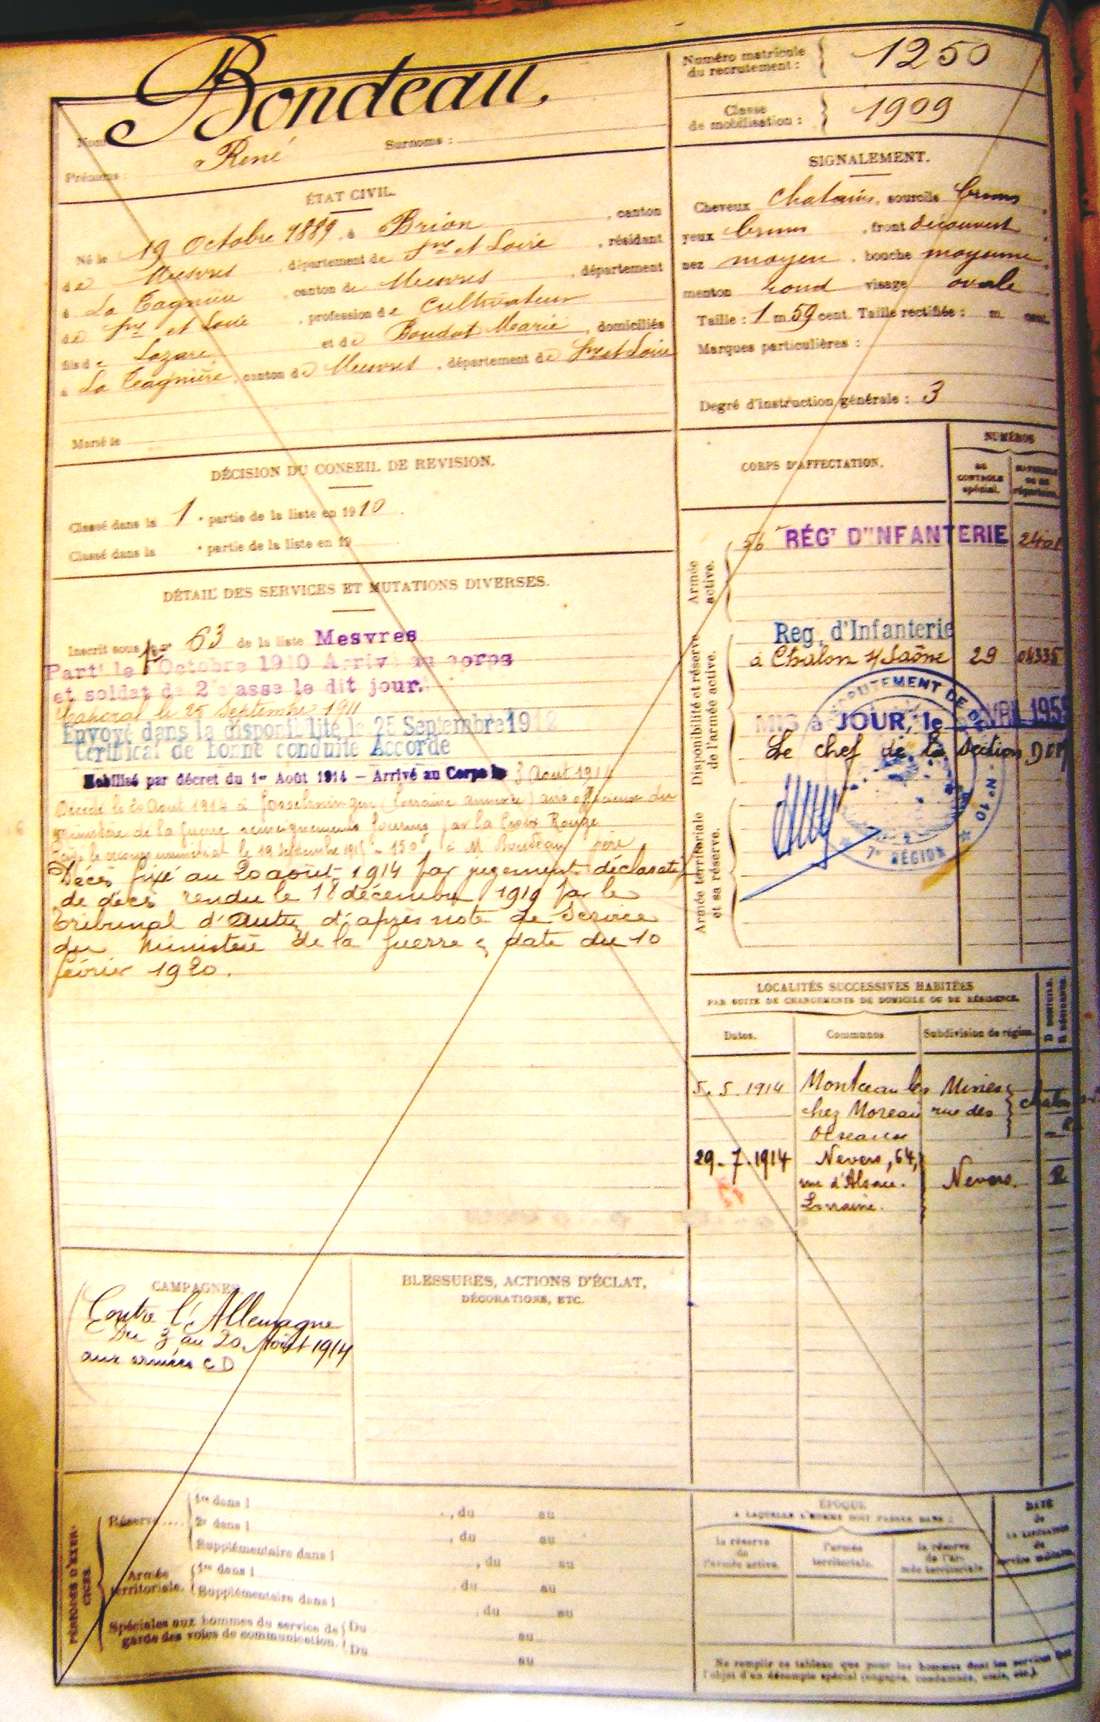 Bondeau,
Nom
René
Prénoms :
Surnoms :
Numéro matricule
du recrutement :
1250
Classe
de mobilisation :
1909
ÉTAT CIVIL.
Né le 19 Octobre 1889, à Brion, canton
de Mesvres, département de Sne et Loire, résidant
à La Tagnière, canton de Mesvres, département
de Sne et Loire, profession de Cultivateur
fils de Lazare et de Boudot Marie, domiciliés
à La Tagnière, canton de Mesvres, département de Sne et Loire
Marié le
SIGNALEMENT.
Cheveux Chatains, sourcils bruns
yeux bruns, front découvert
nez moyen, bouche moyenne,
menton rond visage ovale
Taille : 1 m. 59 cent. Taille rectifiée : m. cent.
Marques particulières :
Degré d'instruction générale : 3
DÉCISION DU CONSEIL DE REVISION.
Classé dans la 1 e partie de la liste en 1910.
Classé dans la e partie de la liste en 19
DÉTAIL DES SERVICES ET MUTATIONS DIVERSES.
Inscrit sous le no 63 de la liste Mesvres
Parti le 1er Octobre 1910 Arrivé au corps
et soldat de 2e classe le dit jour.
Caporal le 25 Septembre 1911
Envoyé dans la disponibilité le 25 Septembre 1912
Certificat de bonne conduite Accordé
Mobilisé par décret du 1er Août 1914 – Arrivé au Corps le 3 Août 1914
Décédé le 20 Août 1914 à (Lorraine annexée) avis officieux du
Ministère de la Guerre renseignements fournis par la Croix Rouge
le 19 Septembre 1915 – 150 f à M. Bondeau père
Décès fixé au 20 août 1914 par jugement déclaratif
de décès rendu le 18 décembre 1919 par le
Tribunal d'Autun d'après note de Service
du Ministère de la Guerre en date du 10
février 1920.
CORPS D'AFFECTATION.
NUMÉROS
DE
CONTROLE
spécial.
MATRICULE
OU DE
répertoire.
Armée
active.
56e RÉGT D'INFANTERIE 2401
Disponibilité et réserve
de l'armée active.
Reg. d'Infanterie
à Chalon s/Saône 29 04335
MIS à JOUR, le AVRIL 195
Le chef de la Section
RECRUTEMENT DE
7e RÉGION
No 10
Armée territoriale
et sa réserve.
LOCALITÉS SUCCESSIVES HABITÉES
PAR SUITE DE CHANGEMENTS DE DOMICILE OU DE RÉSIDENCE.
Dates.
Communes
Subdivision de région.
D DOMICILE.
R RÉSIDENCE.
5. 5. 1914 Montceau les Mines
chez Moreau rue des
Oiseaux
29. 7. 1914 Nevers, 64,
rue d'Alsace-
Lorraine. Nevers. R
CAMPAGNES.
Contre l'Allemagne
Du 3 au 20 Août 1914
aux armées C D
BLESSURES, ACTIONS D'ÉCLAT,
DÉCORATIONS, ETC.
PÉRIODES D'EXER-
CICES.
Réserve....
1re dans l , du au
2e dans l , du au
Supplémentaire dans l , du au
Armée
territoriale.
1re dans l , du au
Supplémentaire dans l , du au
Spéciales aux hommes du service de
garde des voies de communication.
Du au
Du au
ÉPOQUE
A LAQUELLE L'HOMME DOIT PASSER DANS :
la réserve
de
l'armée active.
l'armée
territoriale.
la réserve
de l'ar-
mée territoriale.
DATE
de
LA LIBÉRATION
du
service militaire.
Ne remplir ce tableau que pour les hommes dont les services font
l'objet d'un décompte spécial (engagés, condamnés, omis, etc.).